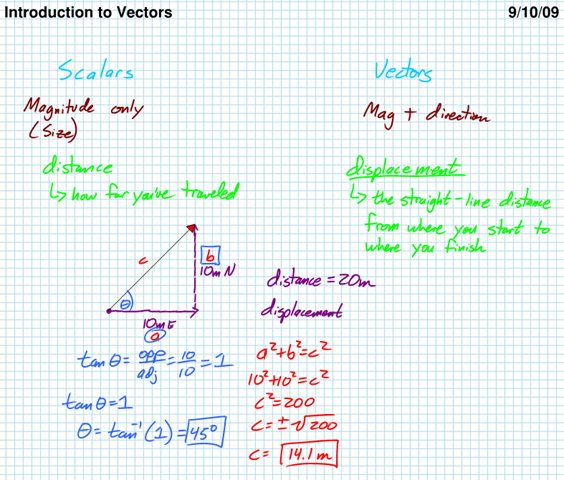 Introduction to Vectors
9/10/09
Scalars
Magnitude only
(Size)
distance
↳ how far you've traveled
Vectors
Mag + direction
displacement
↳ the straight-line distance
from where you start to
where you finish
c
b
10m N
θ
10m E
a
distance = 20m
displacement
tanθ = opp/adj = 10/10 = 1
tanθ = 1
θ = tan⁻¹(1) = 45°
a² + b² = c²
10² + 10² = c²
c² = 200
c = ±√200
c = 14.1 m